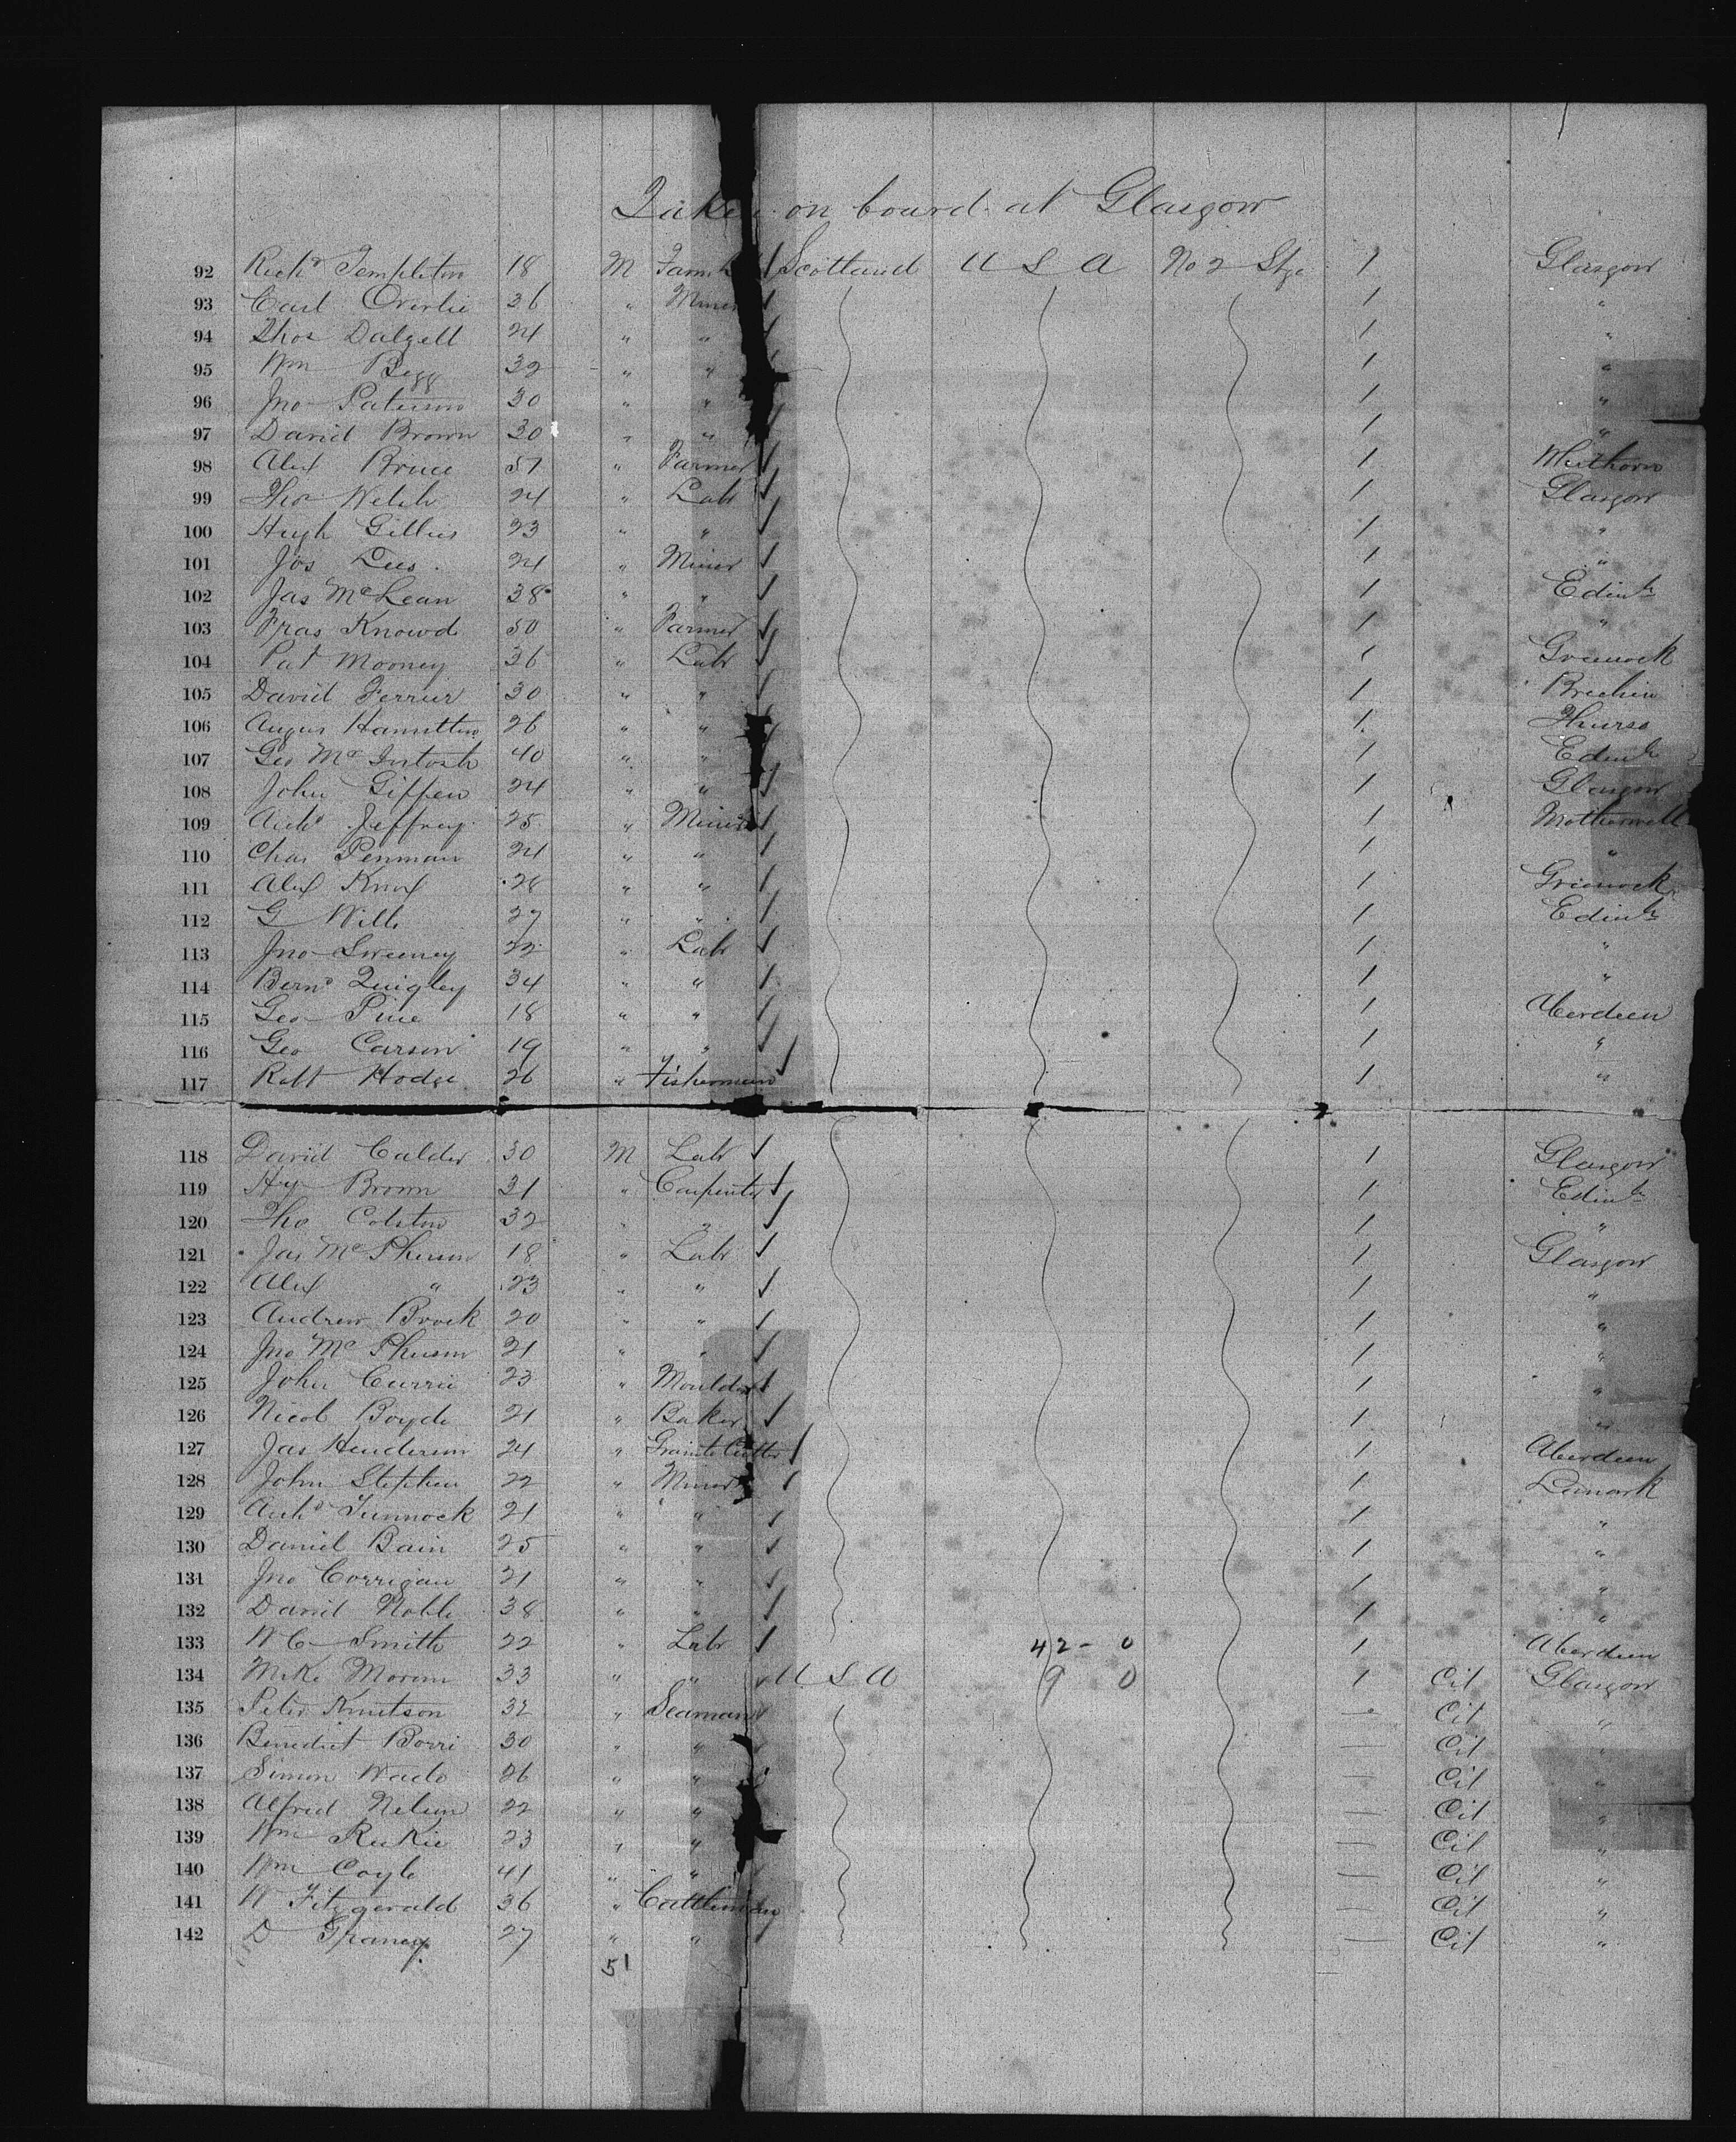 Taken on board at Glasgow
92 Richd Templeton 18 M Farm L Scotland U S A No 2 Stge 1 Glasgow
93 Carl Overlie 26 " Miner 1 "
94 Thos Dalzell 24 " " 1 "
95 Wm Begg 32 " " 1 "
96 Jno Paterson 30 " " 1 "
97 David Brown 30 " " 1 "
98 Alex Bruce 51 " Farmer 1 Whithorn
99 Thos Welch 24 " Labr 1 Glasgow
100 Hugh Gillies 23 " " 1 "
101 Jos Lees 24 " Miner 1 "
102 Jas McLean 38 " " 1 Edinr
103 Fras Knowd 50 " Farmer 1 "
104 Pat Mooney 36 " Labr 1 Greenock
105 David Ferrier 30 " " 1 Brechin
106 Angus Hamilton 26 " " 1 Thurso
107 Geo McIntosh 40 " " 1 Edinr
108 John Giffen 24 " " 1 Glasgow
109 Archd Jeffrey 25 " Miner 1 Motherwell
110 Chas Penman 24 " " 1 "
111 Alex Knox 28 " " 1 Greenock
112 G Wills 27 " " 1 Edinr
113 Jno Sweeney 22 " Labr 1 "
114 Bernd Quigley 34 " " 1 "
115 Geo Pine 18 " " 1 Aberdeen
116 Geo Carson 19 " " 1 "
117 Robt Hodge 26 " Fisherman 1 "
118 David Calder 30 M Labr 1 Glasgow
119 Hy Brown 31 " Carpenter 1 Edinr
120 Tho Colston 32 " " 1 "
121 Jas McPherson 18 " Labr 1 Glasgow
122 Alex " 23 " " 1 "
123 Andrew Brock 20 " " 1 "
124 Jno McPherson 21 " " 1 "
125 John Currie 23 " Moulder 1 "
126 Nicol Boyde 21 " Baker 1 "
127 Jas Henderson 24 " Granite Cutter 1 Aberdeen
128 John Stephen 22 " Miner 1 Lanark
129 Archd Tunnock 21 " " 1 "
130 Daniel Bain 25 " " 1 "
131 Jno Corrigan 21 " " 1 "
132 David Noble 38 " " 1 "
133 W C Smith 22 " Labr 42 - 0 1 Aberdeen
134 Mike Moran 33 " " U S A 9 0 1 Cit Glasgow
135 Peter Knutson 32 " Seaman — Cit "
136 Benedict Borri 30 " " — Cit "
137 Simon Wade 26 " " — Cit "
138 Alfred Nelson 22 " " — Cit "
139 Wm 23 " " — Cit "
140 Wm Coyle 41 " " — Cit "
141 W Fitzgerald 36 " Cattleman — Cit "
142 D Graney 27 " " — Cit "
51